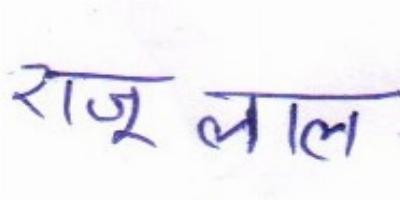 राजू लाल